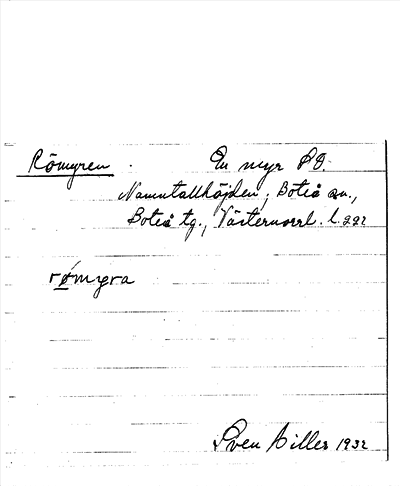 Römyren . En myr SO.
Namntallhöjden, Boteå sn.,
Boteå tg., Västernorrl. l.
rømyra
Sven Hiller 1932